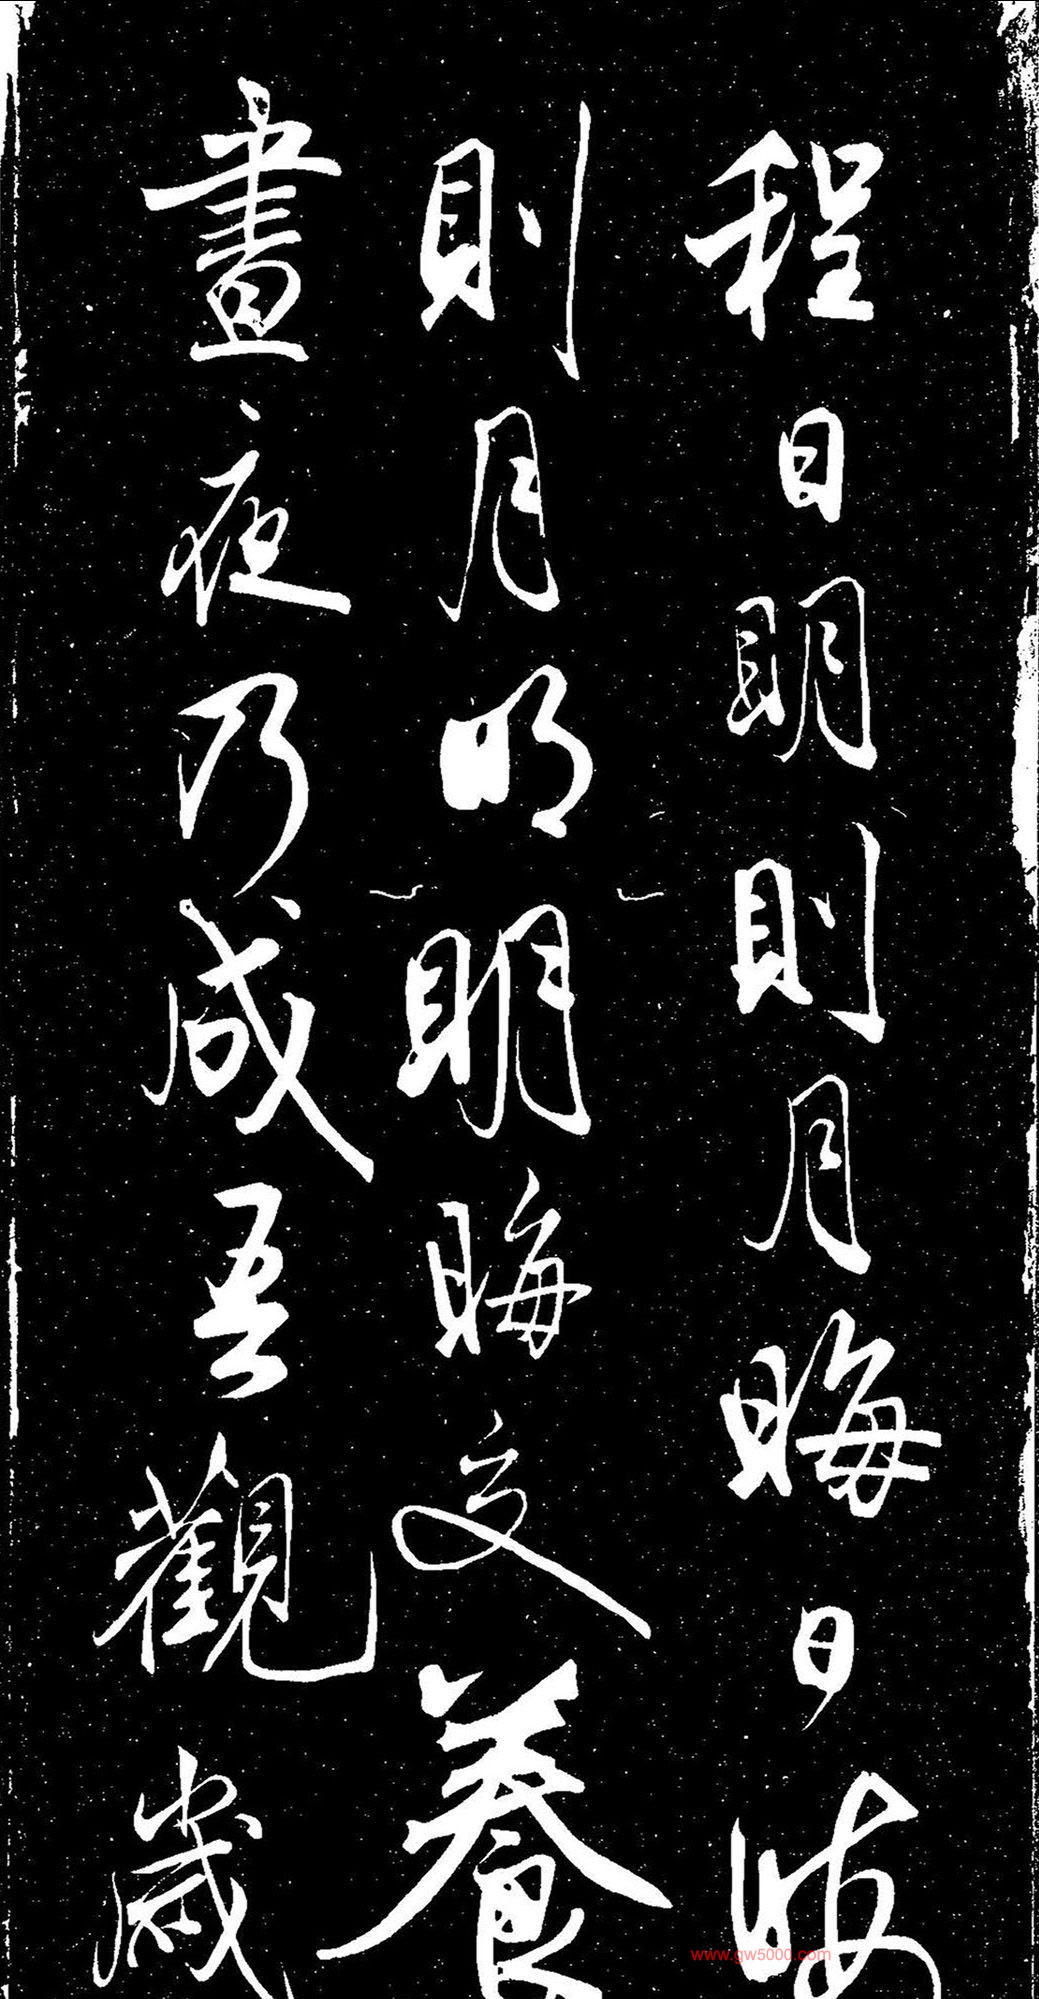 程日明則月晦日晦
則月明明晦交養
晝夜乃成吾觀歲
www.gw5000.com